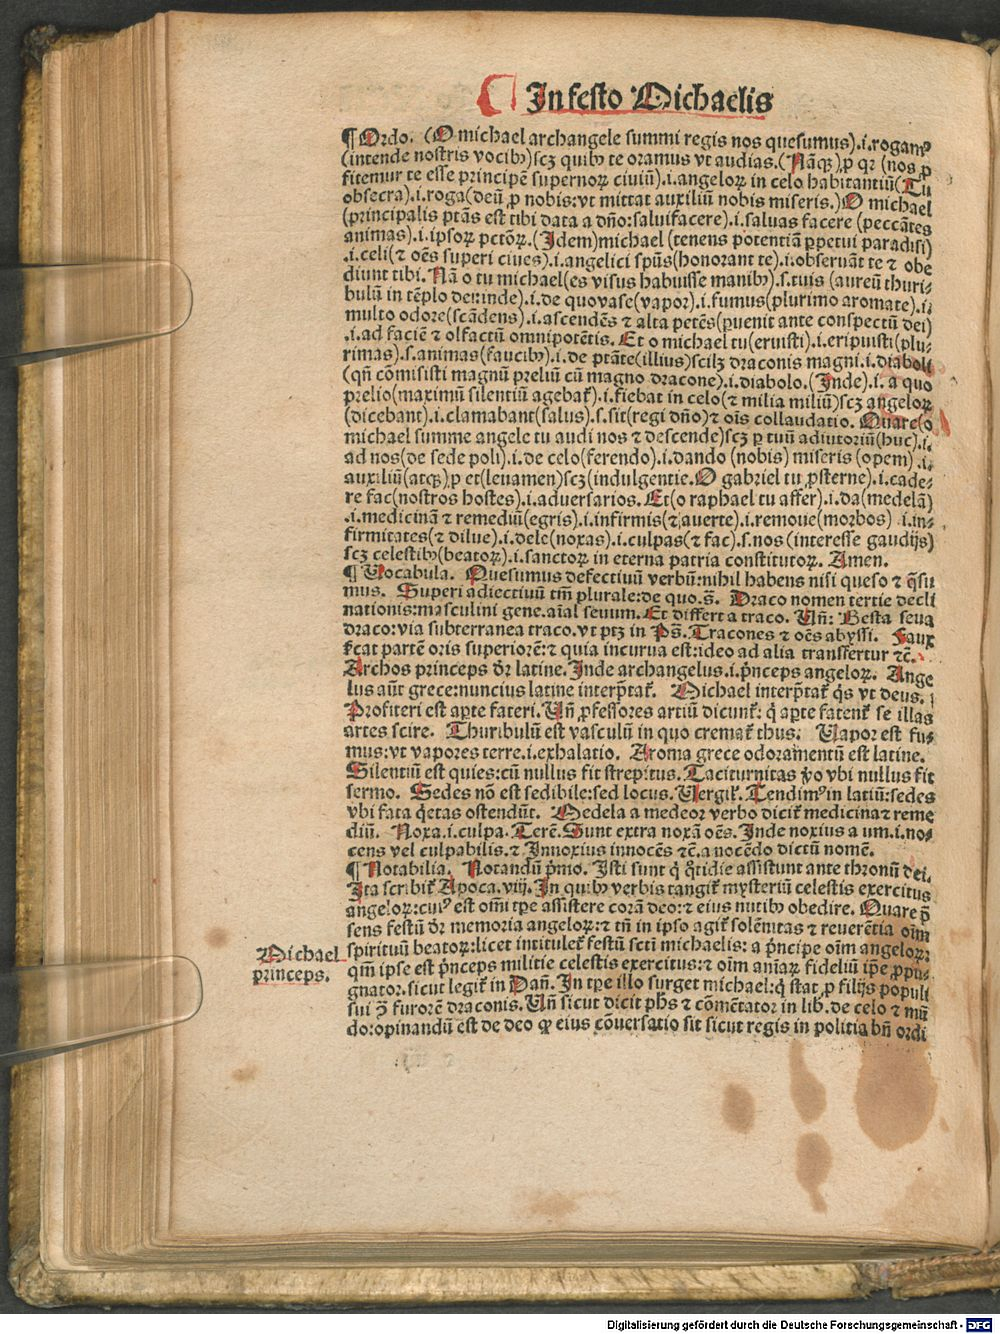 In festo Michaelis
¶ Ordo. (O michael archangele summi regis nos quesumus).i.rogamꝰ
(intende nostris vocibꝫ)scꝫ quibꝫ te oramus vt audias.(Nāqꝫ)ꝓ qr (nos ꝓ
fitemur te esse principē supernoꝝ ciuiū).i.angeloꝝ in celo habitantiū(Tu
obsecra).i.roga(deū ꝓ nobis:vt mittat auxiliū nobis miseris.)O michael
(principalis ptās est tibi data a dño:saluifacere).i.saluas facere (peccātes
animas).i.ipsoꝝ pctōꝝ.(Idem)michael (tenens potentiā ꝑpetui paradisi)
.i.celi(⁊ oēs superi ciues).i.angelici spūs(honorant te).i.obseruāt te ⁊ obe
diunt tibi. Nā o tu michael(es visus habuisse manibꝫ).s.tuis (aureū thuri⸗
bulū in tēplo deitinde).i.de quo vase(vapor).i.fumus(plurimo aromate).i.
multo odore(scādens).i.ascendēs ⁊ alta petēs(ꝑuenit ante conspectū dei)
.i.ad faciē ⁊ olfactū omnipotētis. Et o michael tu(eruisti).i.eripuisti(plu⸗
rimas).s.animas(faucibꝫ).i.de ptāte(illius)scilꝫ draconis magni.i.diaboli
(qñ cōmisisti magnū preliū cū magno dracone).i.diabolo.(Inde).i.a quo
prelio(maximū silentiū agebat᷑).i.fiebat in celo(⁊ milia miliū)scꝫ angeloꝝ
(dicebant).i.clamabant(salus).s.sit(regi dño)⁊ oīs collaudatio. Quare(o
michael summe angele tu audi nos ⁊ descende)scꝫ ꝑ tuū adiutoriū(huc).i.
ad nos(de sede poli).i.de celo(ferendo).i.dando (nobis) miseris (opem).i.
auxiliū(atqꝫ)ꝓ et(leuamen)scꝫ(indulgentie.O gabriel tu ꝓsterne).i.cade⸗
re fac(nostros hostes).i.aduersarios. Et(o raphael tu affer).i.da(medelā)
.i.medicinā ⁊ remediū(egris).i.infirmis(⁊ auerte).i.remoue(morbos) .i.in⸗
firmitates(⁊ dilue).i.dele(noxas).i.culpas(⁊ fac).s.nos (interesse gaudijs)
scꝫ celestibꝫ(beatoꝝ).i.sanctoꝝ in eterna patria constitutoꝝ. Amen.
¶ Vocabula. Quesumus defectiuū verbū:nihil habens nisi queso ⁊ q̄su
mus. Superi adiectiuū tm̄ plurale:de quo.s̄. Draco nomen tertie decli
nationis:masculini gene.aīal seuum. Et differt a traco. Vñ: Bestia seua
draco:via subterranea traco.vt ptꝫ in Ps̄. Tracones ⁊ oēs abyssi. Faux
f᷑cat partē oris superiorē:⁊ quia incurua est:ideo ad alia transfertur ⁊c̄.
Archos princeps d᷑r latine. Inde archangelus.i.p̄nceps angeloꝝ. Ange
lus aūt grece:nuncius latine interp̄tat᷑. Michael interp̄tat᷑ q̄s vt deus.
Profiteri est aꝑte fateri. Vñ ꝓfessores artiū dicunt᷑: q̄ aꝑte fatent᷑ se illas
artes scire. Thuribulū est vasculū in quo cremat᷑ thus. Vapor est fu⸗
mus:vt vapores terre.i.exhalatio. Aroma grece odoramentū est latine.
Silentiū est quies:cū nullus fit strepitus. Taciturnitas v̄o vbi nullus fit
sermo. Sedes nō est sedibile:sed locus. Vergil᷑. Tendimꝰ in latiū:sedes
vbi fata q̄etas ostendūt. Medela a medeor verbo dicit᷑ medicina ⁊ reme
diū. Noxa.i.culpa. Terē. Sunt extra noxā oēs. Inde noxius a um.i.no⸗
cens vel culpabilis.⁊ Innoxius innocēs ⁊c̄.a nocēdo dictū nomē.
¶ Notabilia. Notandū p̄mo. Isti sunt q̄ q̄tidie assistunt ante thronū dei.
Ita scribit᷑ Apoca.viij. In quibꝫ verbis tangit᷑ mysteriū celestis exercitus
angeloꝝ:cuiꝰ est oīm tꝑe assistere corā deo:⁊ eius nutibꝫ obedire. Quare p̄
sens festū d᷑r memoria angeloꝝ:⁊ tñ in ipso agit᷑ solēnitas ⁊ reuerētia oīm
spirituū beatoꝝ:licet intitulet᷑ festū scti michaelis: a p̄ncipe oīm angeloꝝ:
qm̄ ipse est p̄nceps militie celestis exercitus:⁊ oīm aīaꝝ fideliū ip̄e ꝓpu⸗
gnator.sicut legit᷑ in Dañ. In tꝑe illo surget michael:q̄ stat ꝓ filijs populi
sui ꝯ̄ furorē draconis. Vñ sicut dicit ph̄s ⁊ cōmētator in lib.de celo ⁊ mū
do:opinandū est de deo ꝙ eius cōuersatio sit sicut regis in politia bñ ordi
Michael
princeps.
Digitalisierung gefördert durch die Deutsche Forschungsgemeinschaft - DFG